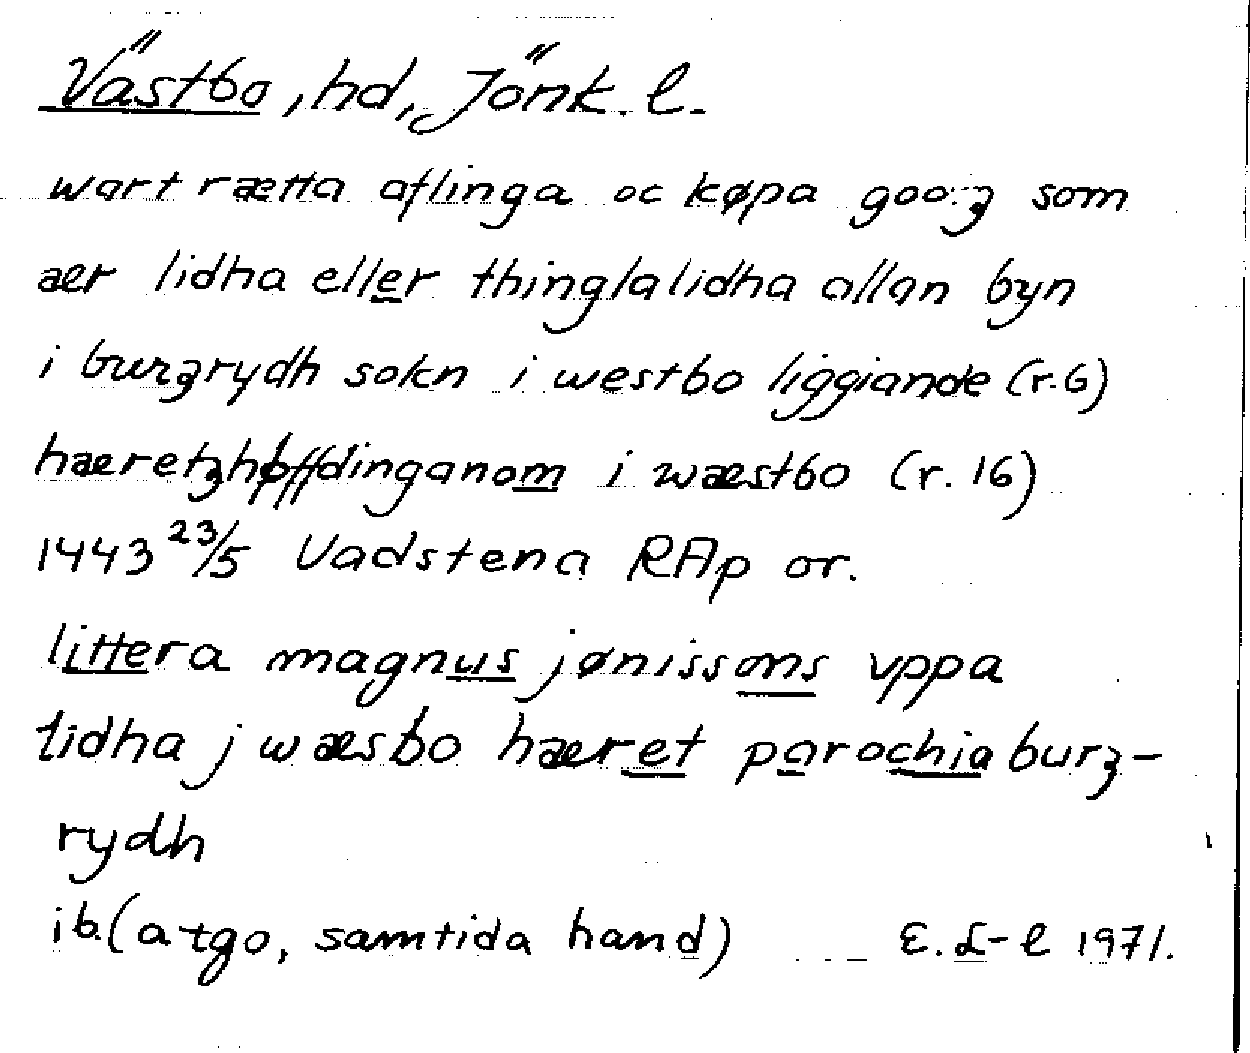 Västbo, hd, Jönk. l.
wart rætta aflinga oc køpa gooz som
aer lidha eller thinglalidha allan byn
i burzrydh sokn i westbo liggiande (r.6)
haeretzhøffdinganom i wæstbo (r. 16)
1443 23/5 Vadstena RAp or.
littera magnus jønissons vppa
lidha j wæsbo hæret parochia burz-
rydh
ib. (atgo, samtida hand) E. L-l 1971.